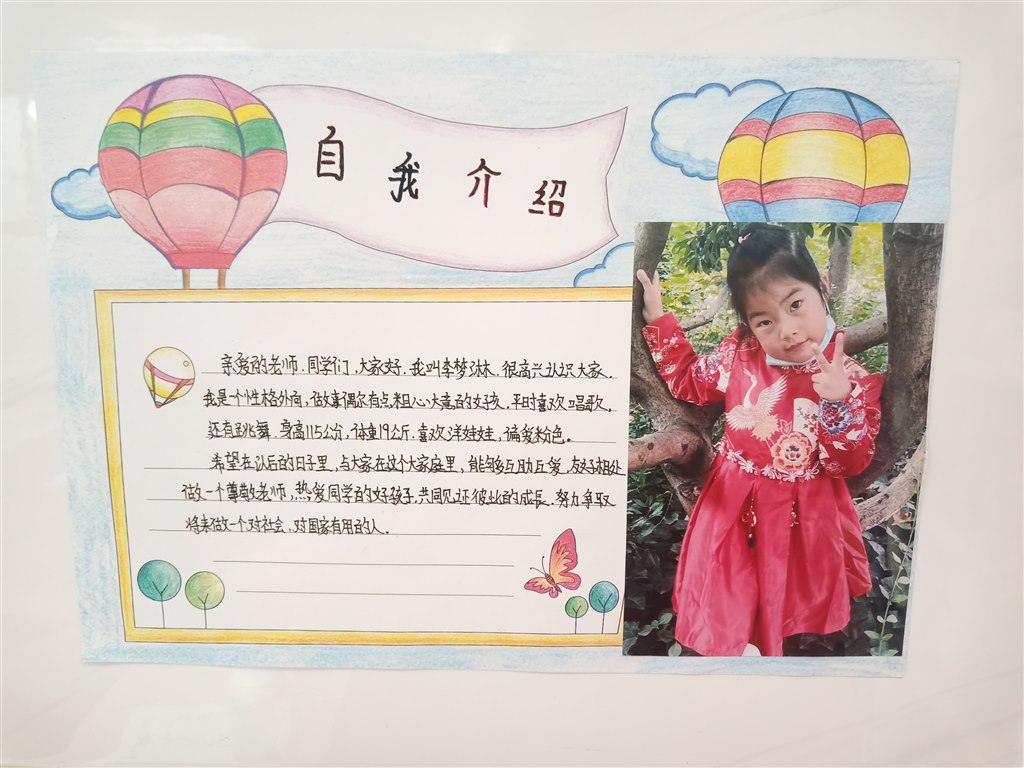 自我介绍
亲爱的老师.同学们,大家好.我叫李梦淋.很高兴认识大家.
我是个性格外向,做事偶尔有点粗心大意的好友,平时喜欢唱歌,
还有跳舞.身高115公分,体重19公斤.喜欢洋娃娃,偏爱粉色。
希望在以后的日子里,与大家在这个大家庭里,能够互助互爱,友好相处
做一个尊敬老师,热爱同学的好孩子,共同见证彼此的成长.努力争取
将来做一个对社会.对国家有用的人。